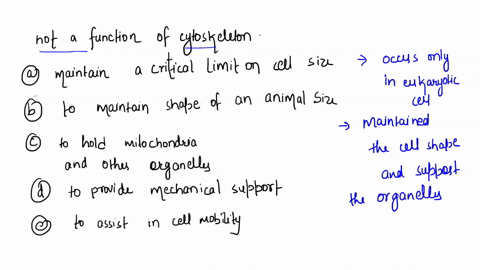 not a function of cytoskeleton.
(a) maintain a critical limit on cell size
(b) to maintain shape of an animal size
(c) to hold mitochondria
and other organelles
(d) to provide mechanical support
(e) to assist in cell mobility
→ occurs only
in eukaryotic
cell
→ Maintained
the cell shape
and support
the organelles